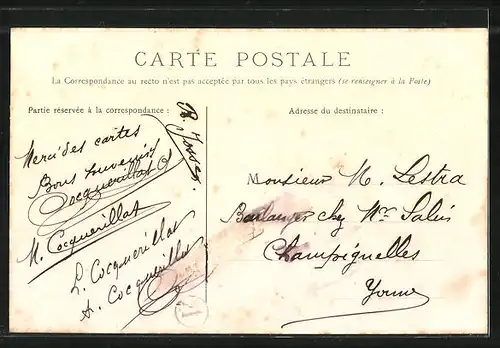 CARTE POSTALE
La Correspondance au recto n'est pas acceptée par tous les pays étrangers (se renseigner à la Poste)
Partie réservée à la correspondance :
Adresse du destinataire :
Merci des cartes
Bons souvenirs
Cocquerillat
M. Cocquerillat
L. Cocquerillat
A. Cocquerillat
Monsieur M. Lestra
Boulanger chez Mr Salin
Champignelles
Yonne